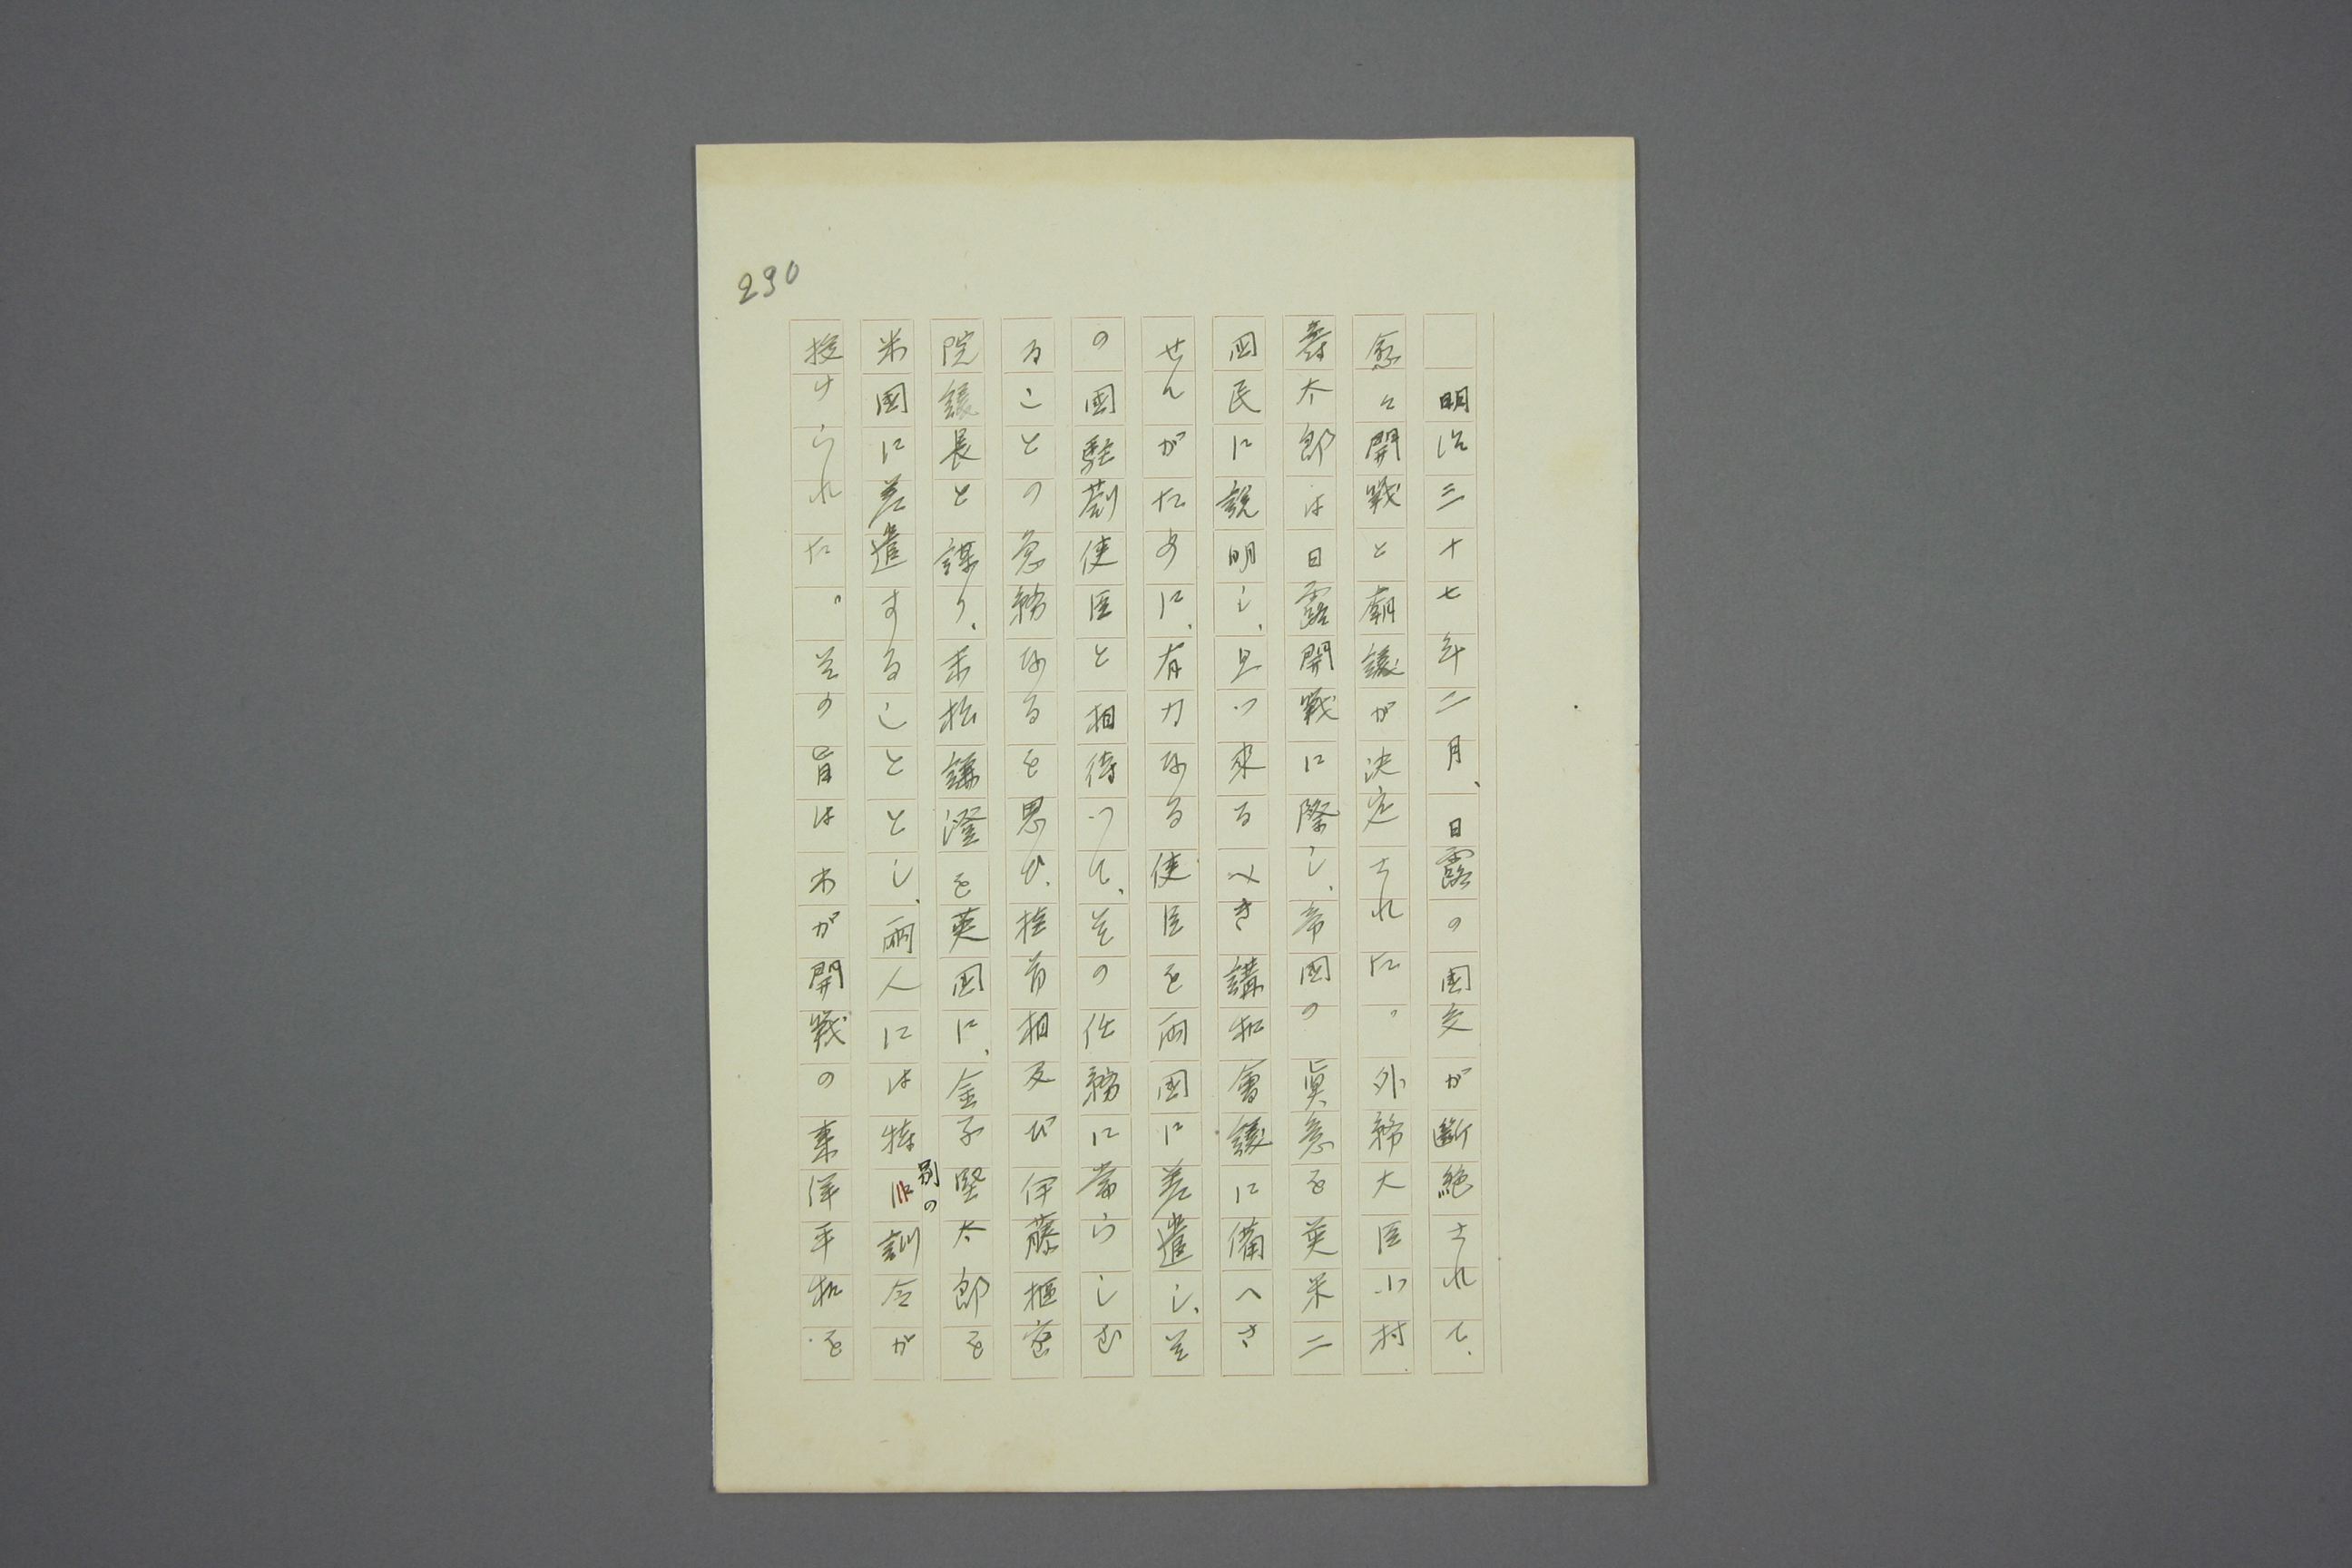 290
明治三十七年二月、日露の国交が断絶されて、
愈々開戦と廟議が決定された。外務大臣小村
壽太郎は日露開戦に際し、帝国の眞意を英米二
国民に説明し、且つ来るべき講和會議に備へさ
せんがために、有力なる使臣を両国に差遣し、そ
の国駐剳使臣と相待つて、その任務に當らしむ
ることの急務なるを思ひ、桂首相及び伊藤樞密
院議長と謀り、末松謙澄を英国に、金子堅太郎を
米国に差遣することとし、両人には特別の訓令が
授けられた。その旨はわが開戦の東洋平和を